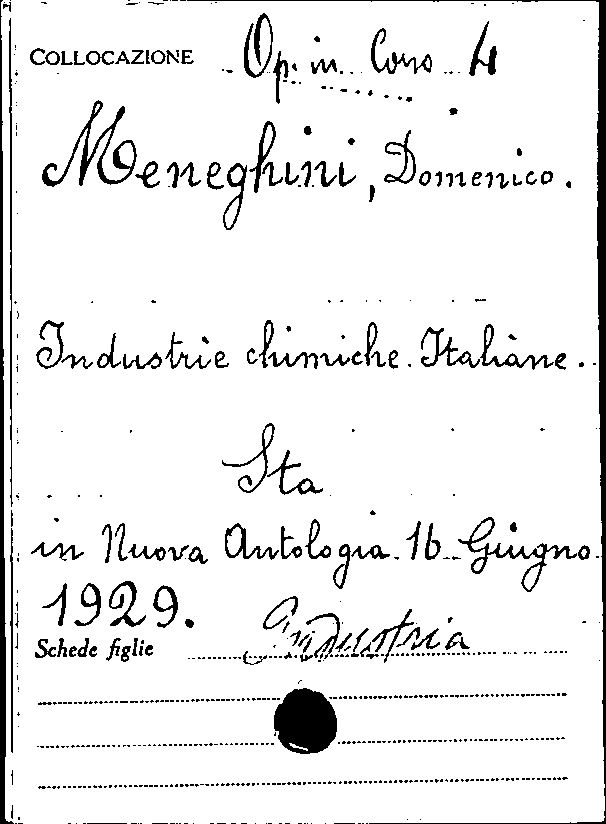 COLLOCAZIONE Op. in Corso 4
Meneghini, Domenico.
Industrie chimiche Italiane.
Sta
in Nuova Antologia 16 Giugno
1929.
Schede figlie Industria